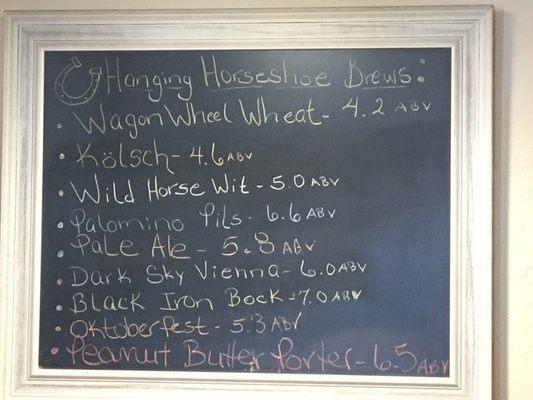 Hanging Horseshoe Brews:
• Wagon Wheel Wheat - 4.2 ABV
• Kölsch - 4.6 ABV
• Wild Horse Wit - 5.0 ABV
• Palomino Pils - 6.6 ABV
• Pale Ale - 5.8 ABV
• Dark Sky Vienna - 6.0 ABV
• Black Iron Bock - 7.0 ABV
• Oktoberfest - 5.3 ABV
• Peanut Butter Porter - 6.5 ABV